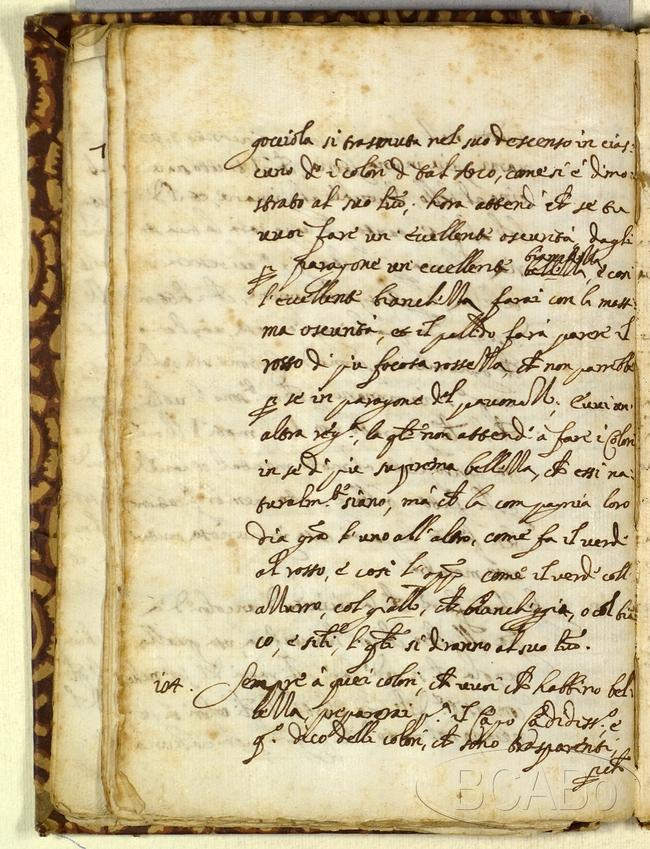 gocciola si trasmuta nel suo descenso in cias-
cuno de i colori di tal Arco, come si é dimo-
strato al suo luo; hora attendi ch se tu
vuoi fare un' eccellente oscurità dagli
p paragone un' eccellente bianchezza, e così
l'eccellente bianchezza farai con la mass-
ma oscurità, et il pallido farà parere il
rosso di più focosa rossezza, ch non parrebbe
p se in paragone del pavonazzo; Euui un'
altra regª, la qle non attende à fare i Colori
in sé di più suprema bellezza, ch essi na-
turalmte siano, mà ch la compagnia loro
dia gra l'uno all'altro, come fa il verde
al rosso, e così l'opp come il verde coll'
azzurro, col giallo, ch bianchegia, o col bia
co, e siti, l qti si diranno al suo luo.
104. Sempre à quei colori, ch vuoi ch habbino bel-
lezza, preparerai pª il capo cadidissº, e
qº dico delli colori, ch sono trasparenti,
pch
BCABo